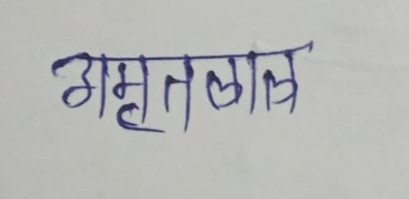 अमृतलाल